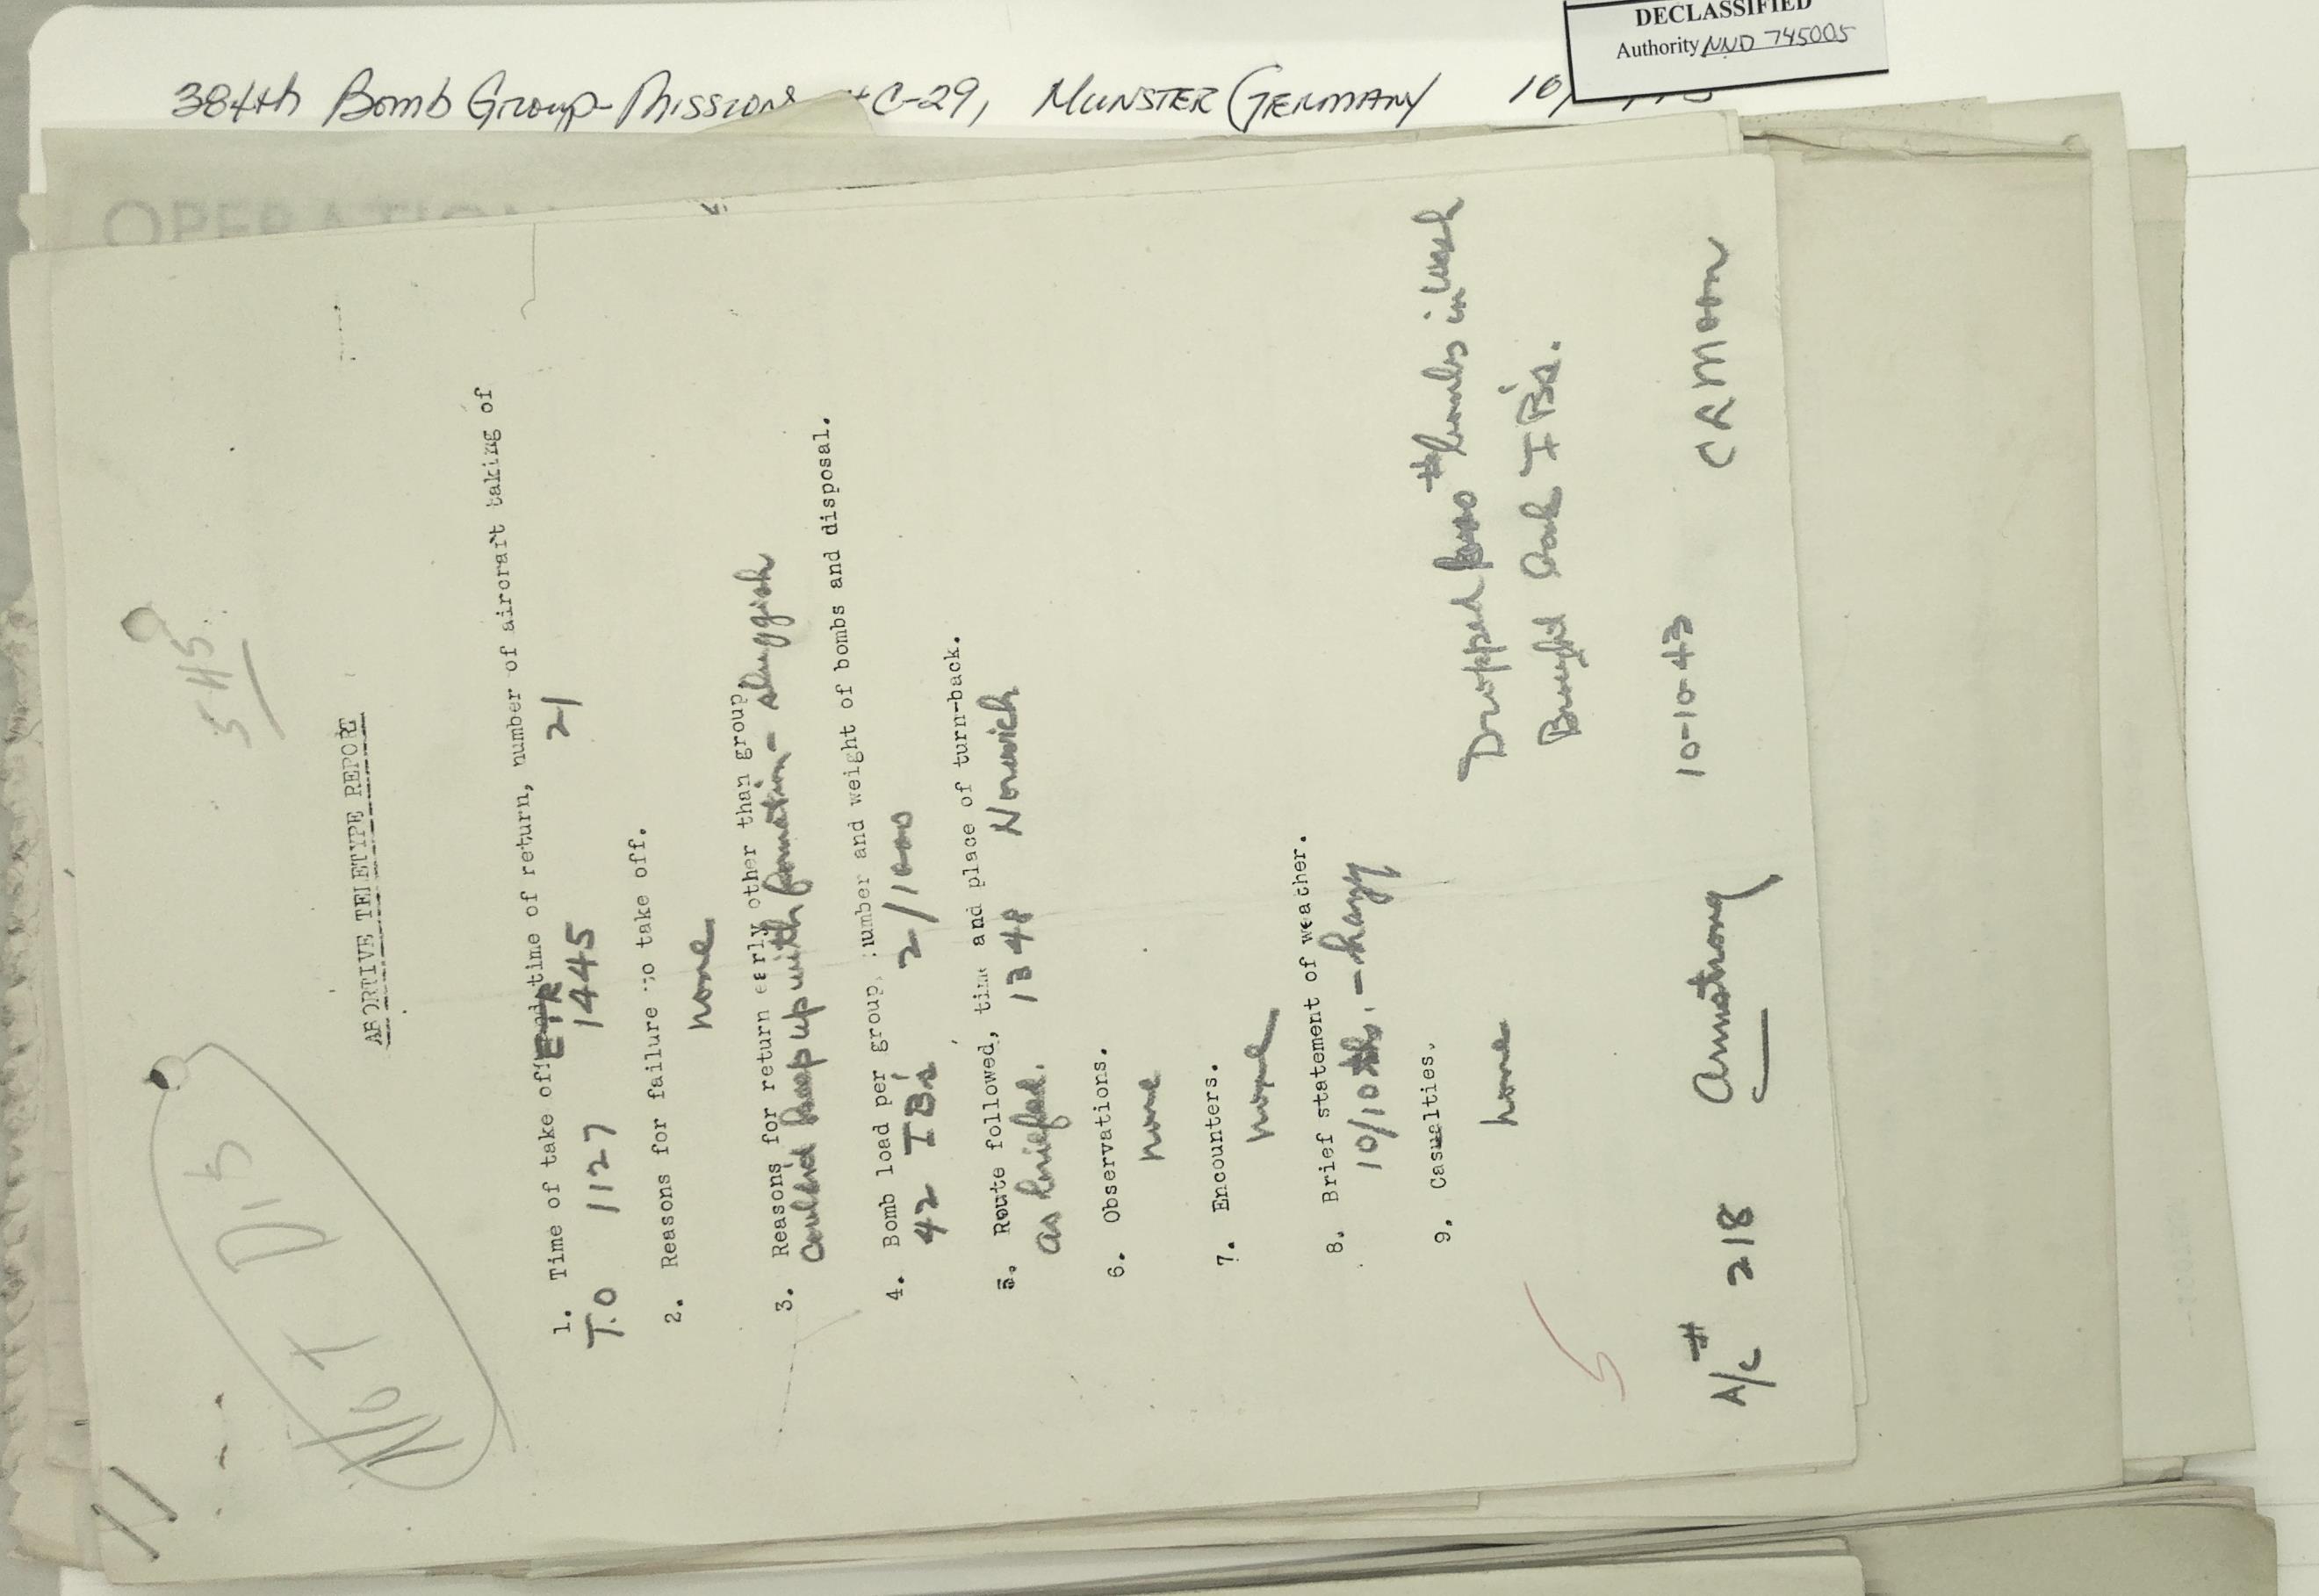 DECLASSIFIED
Authority NND 745005
384th Bomb Group - Mission # C-29, MUNSTER GERMANY 10/
OPERATION
11
NOT DIS
545
ABORTIVE TELETYPE REPORT
1. Time of take off, time of return, number of aircraft taking of
ETR
T.O 1127 1445 21
2. Reasons for failure to take off.
none
3. Reasons for return early other than group.
Couldnt keep up with formation - sluggish
4. Bomb load per group, number and weight of bombs and disposal.
42 IB's 2/1000
5. Route followed, time and place of turn-back.
as briefed. 1348 Norwich
6. Observations.
none
7. Encounters.
none
8. Brief statement of weather.
10/10ths. - hazy
9. Casualties.
none
Dropped 1000 # bombs in Wash
Brought back IB's.
A/c # 218 Armstrong 10-10-43 CARMOON